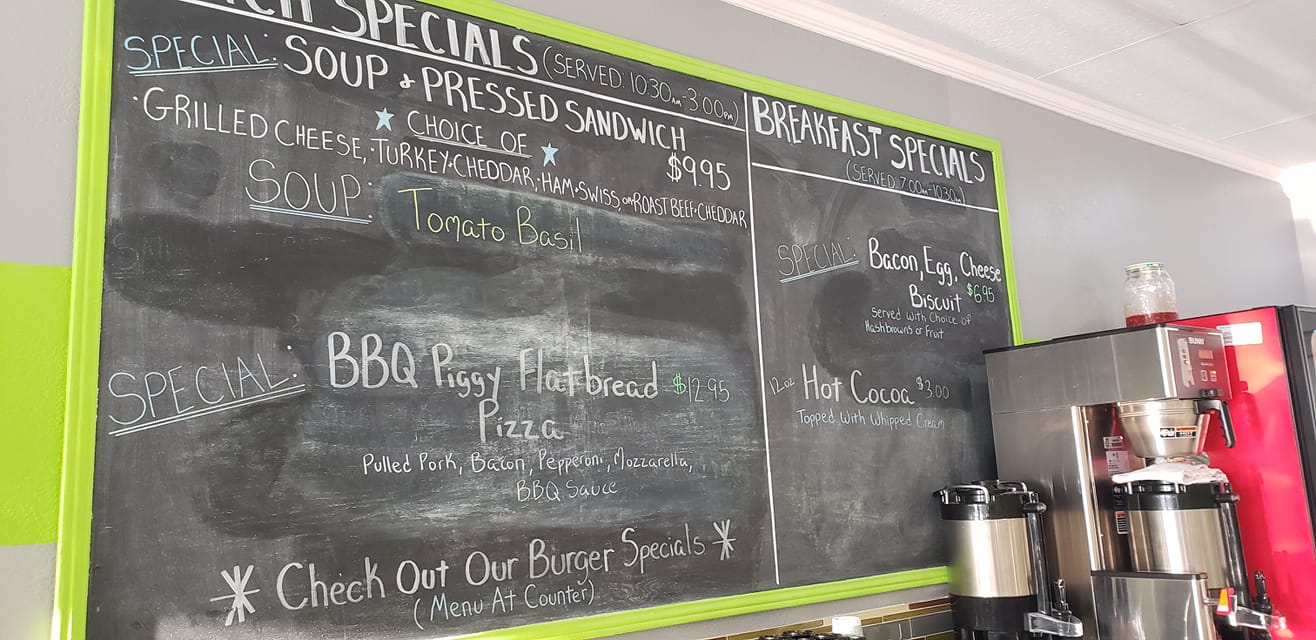 SPECIALS (SERVED: 10:30am-3:00pm)
SPECIAL: SOUP & PRESSED SANDWICH
CHOICE OF $9.95
·GRILLED CHEESE, ·TURKEY·CHEDDAR, ·HAM·SWISS, or ROAST BEEF·CHEDDAR
SOUP: Tomato Basil
SPECIAL: BBQ Piggy Flatbread $12.95
Pizza
Pulled Pork, Bacon, Pepperoni, Mozzarella,
BBQ Sauce
Check Out Our Burger Specials
(Menu At Counter)
BREAKFAST SPECIALS
(SERVED: 7:00am-10:30am)
SPECIAL: Bacon, Egg, Cheese
Biscuit $6.95
Served with Choice of
Hashbrowns or Fruit
12oz Hot Cocoa $3.00
Topped With Whipped Cream
BUNN